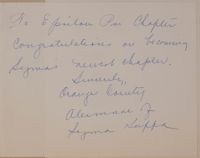 To Epsilon Psi Chapter
Congratulations on becoming
Sigma's newest chapter.
Sincerely,
Orange County
Alumnae of
Sigma Kappa